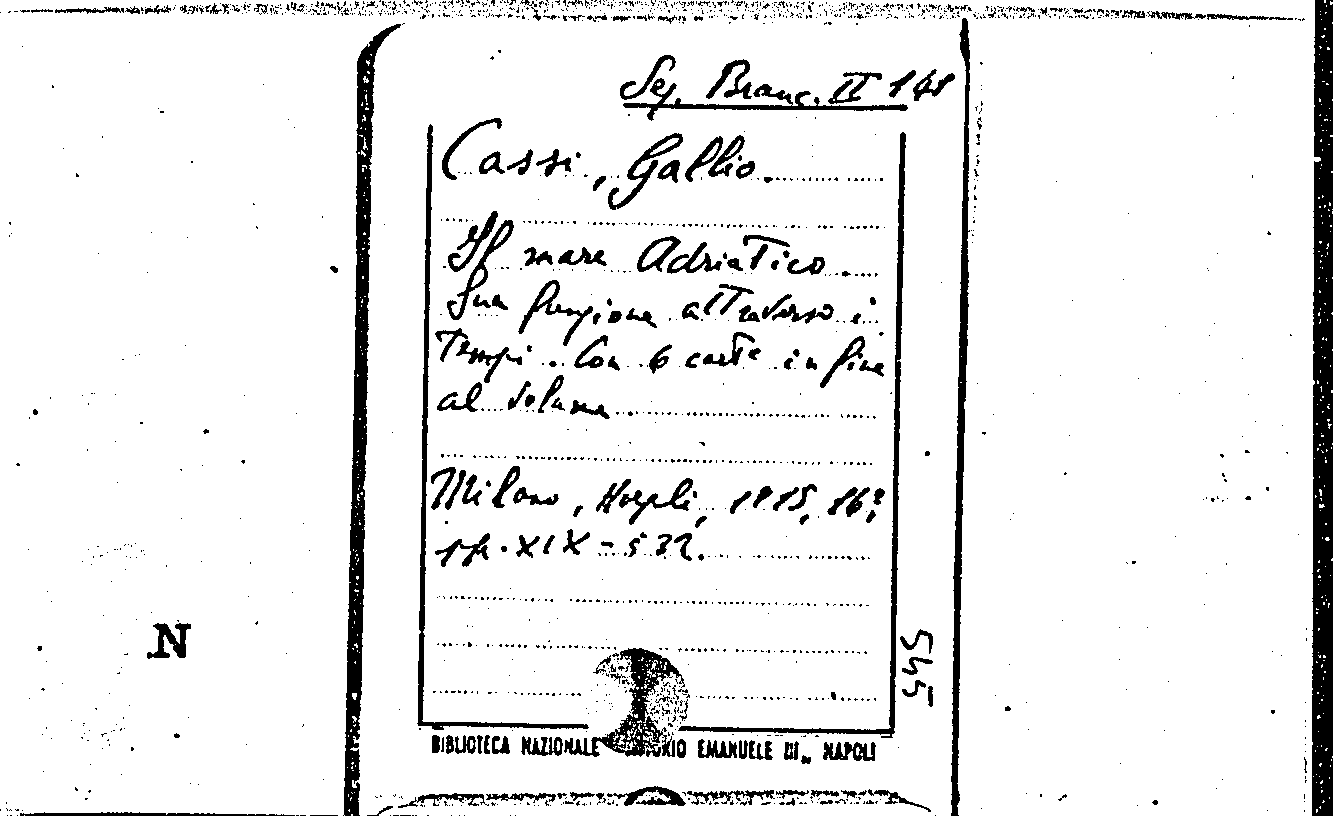 Sez. Branc. II 141
Cassi, Gallio.
Il mare Adriatico.
Sua funzione attraverso i
tempi. Con 6 carte in fine
al volume.
Milano, Hoepli, 1915, 16º,
pp. XIX-532.
N
545
BIBLIOTECA NAZIONALE EMANUELE III„ NAPOLI